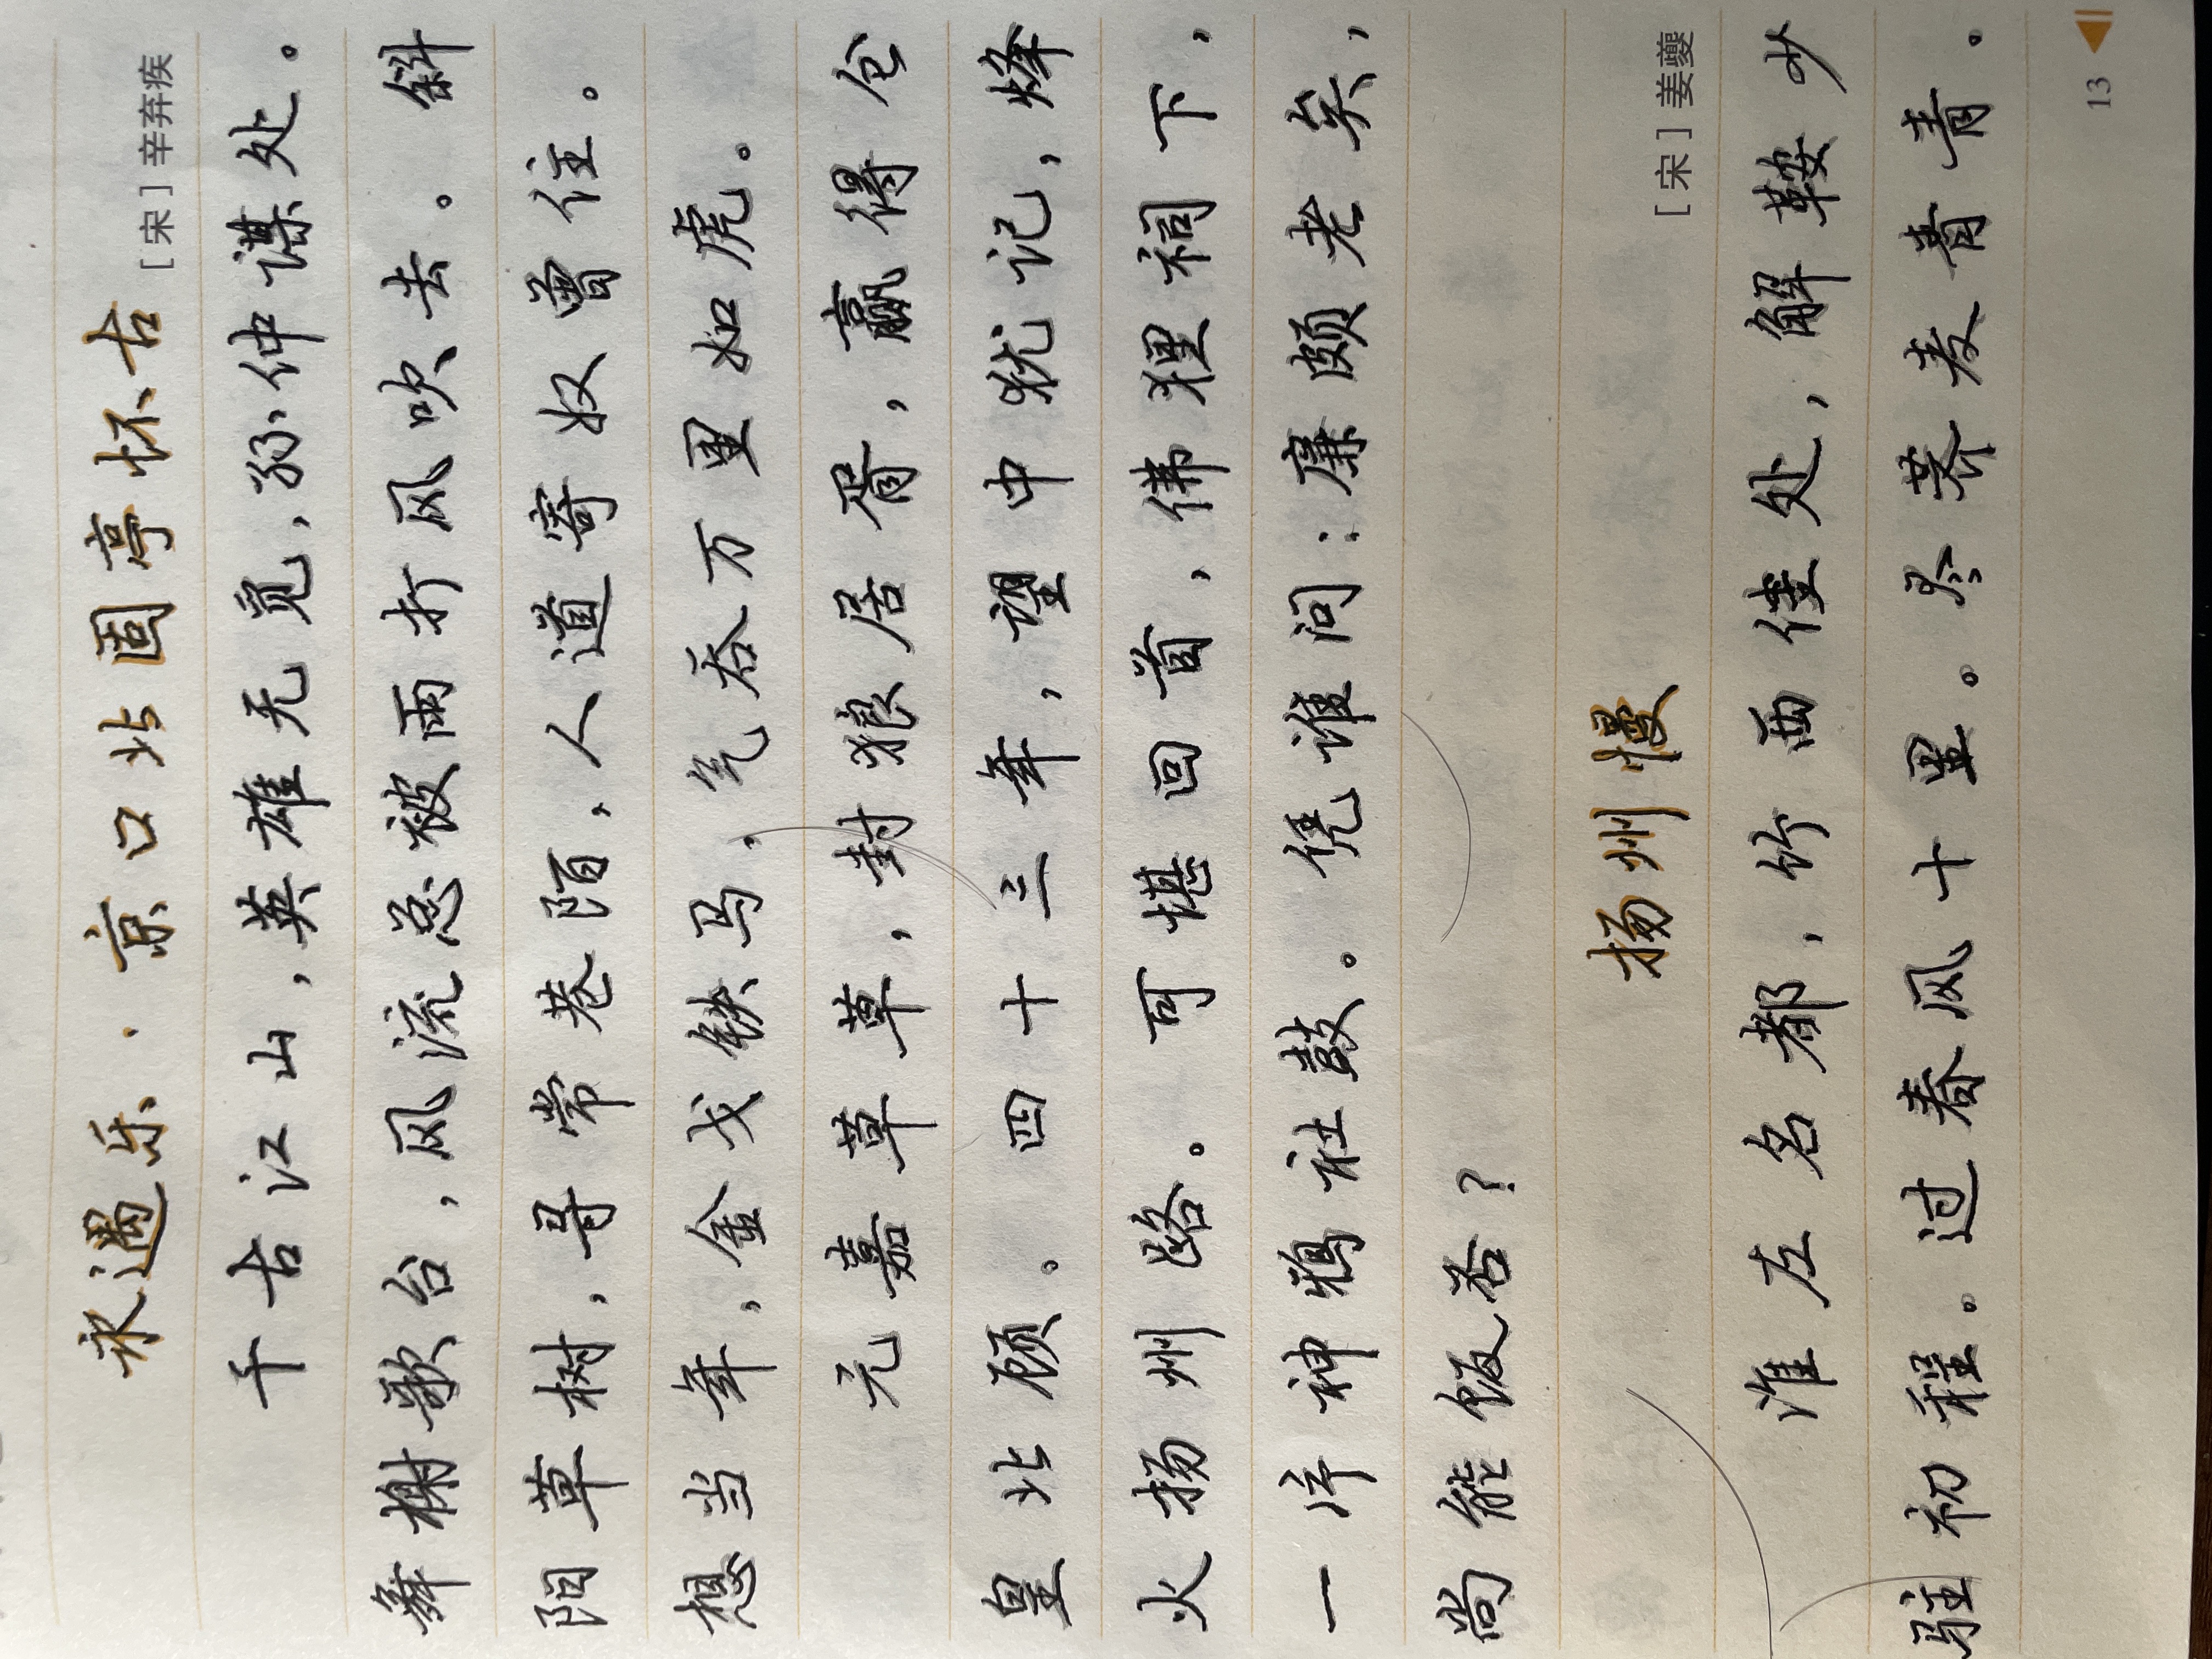 永遇乐·京口北固亭怀古 [宋]辛弃疾
千古江山,英雄无觅,孙仲谋处。
舞榭歌台,风流总被雨打风吹去。斜
阳草树,寻常巷陌,人道寄奴曾住。
想当年,金戈铁马,气吞万里如虎。
元嘉草草,封狼居胥,赢得仓
皇北顾。四十三年,望中犹记,烽
火扬州路。可堪回首,佛狸祠下,
一片神鸦社鼓。凭谁问:廉颇老矣,
尚能饭否?
扬州慢
[宋]姜夔
淮左名都,竹西佳处,解鞍少
驻初程。过春风十里。尽荠麦青青。
13